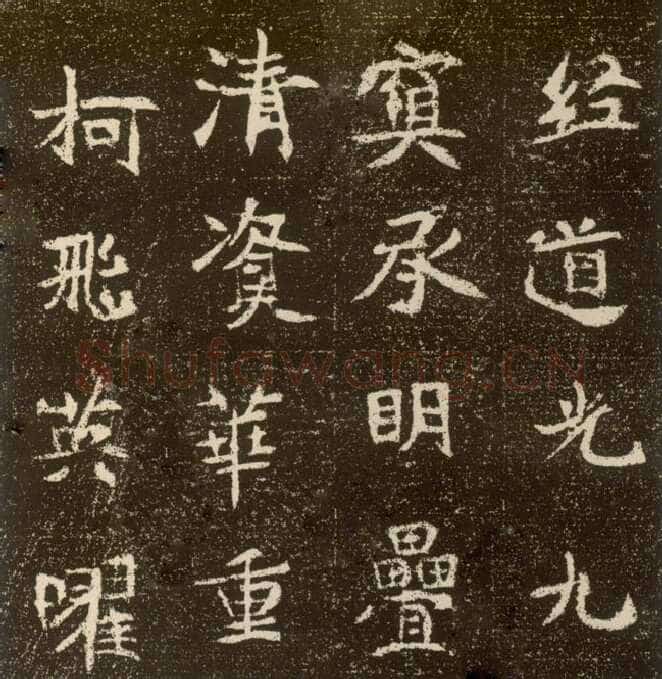 经道光九
㝠承明疊
清資華重
柯飛英曜
Shufawang.CN